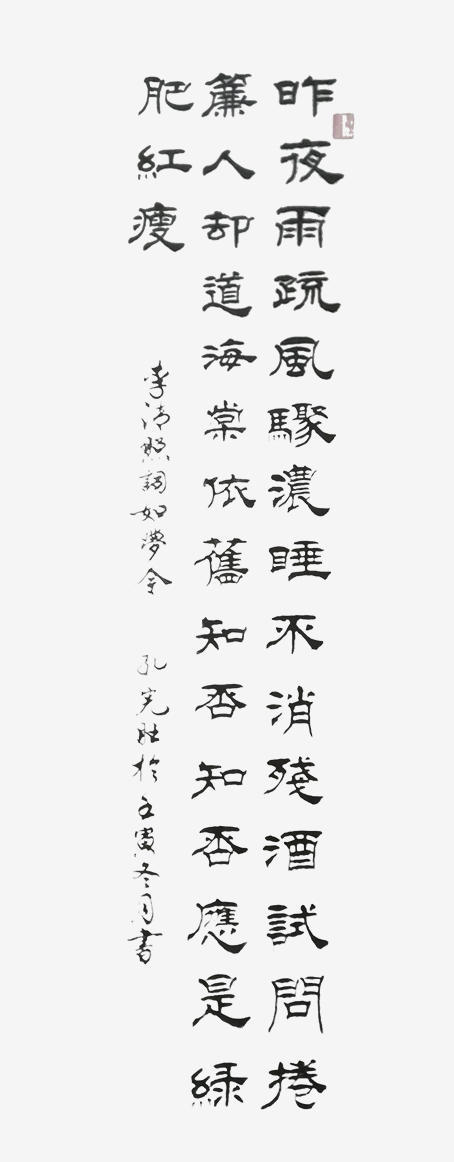 昨夜雨疏風驟濃睡不消殘酒試問捲
簾人却道海棠依舊知否知否應是緑
肥紅瘦
李清照詞如夢令 孔憲壯於壬寅冬月書